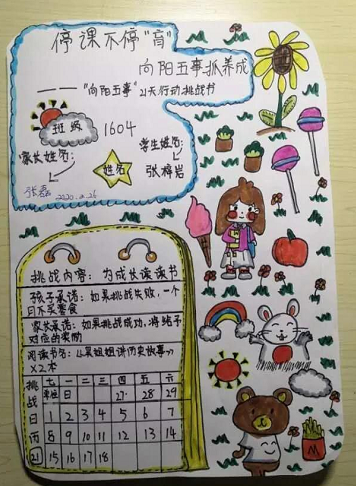 停课不停“育”
向阳五事抓养成
——“向阳五事”21天行动挑战书
班级 1604
家长姓名： 学生姓名：
姓名
张磊 2020.2.26 张梓岩
挑战内容：为成长读读书
孩子承诺：如果挑战失败，一个
月不买零食
家长承诺：如果挑战成功，将给予
对应的奖励
阅读书名：《果姐姐讲历史故事》
×2本
挑战日历21
七 一 二 三 四 五 六
日 27 28 29
1 2 3 4 5 6 7
8 9 10 11 12 13 14
15 16 17 18
M